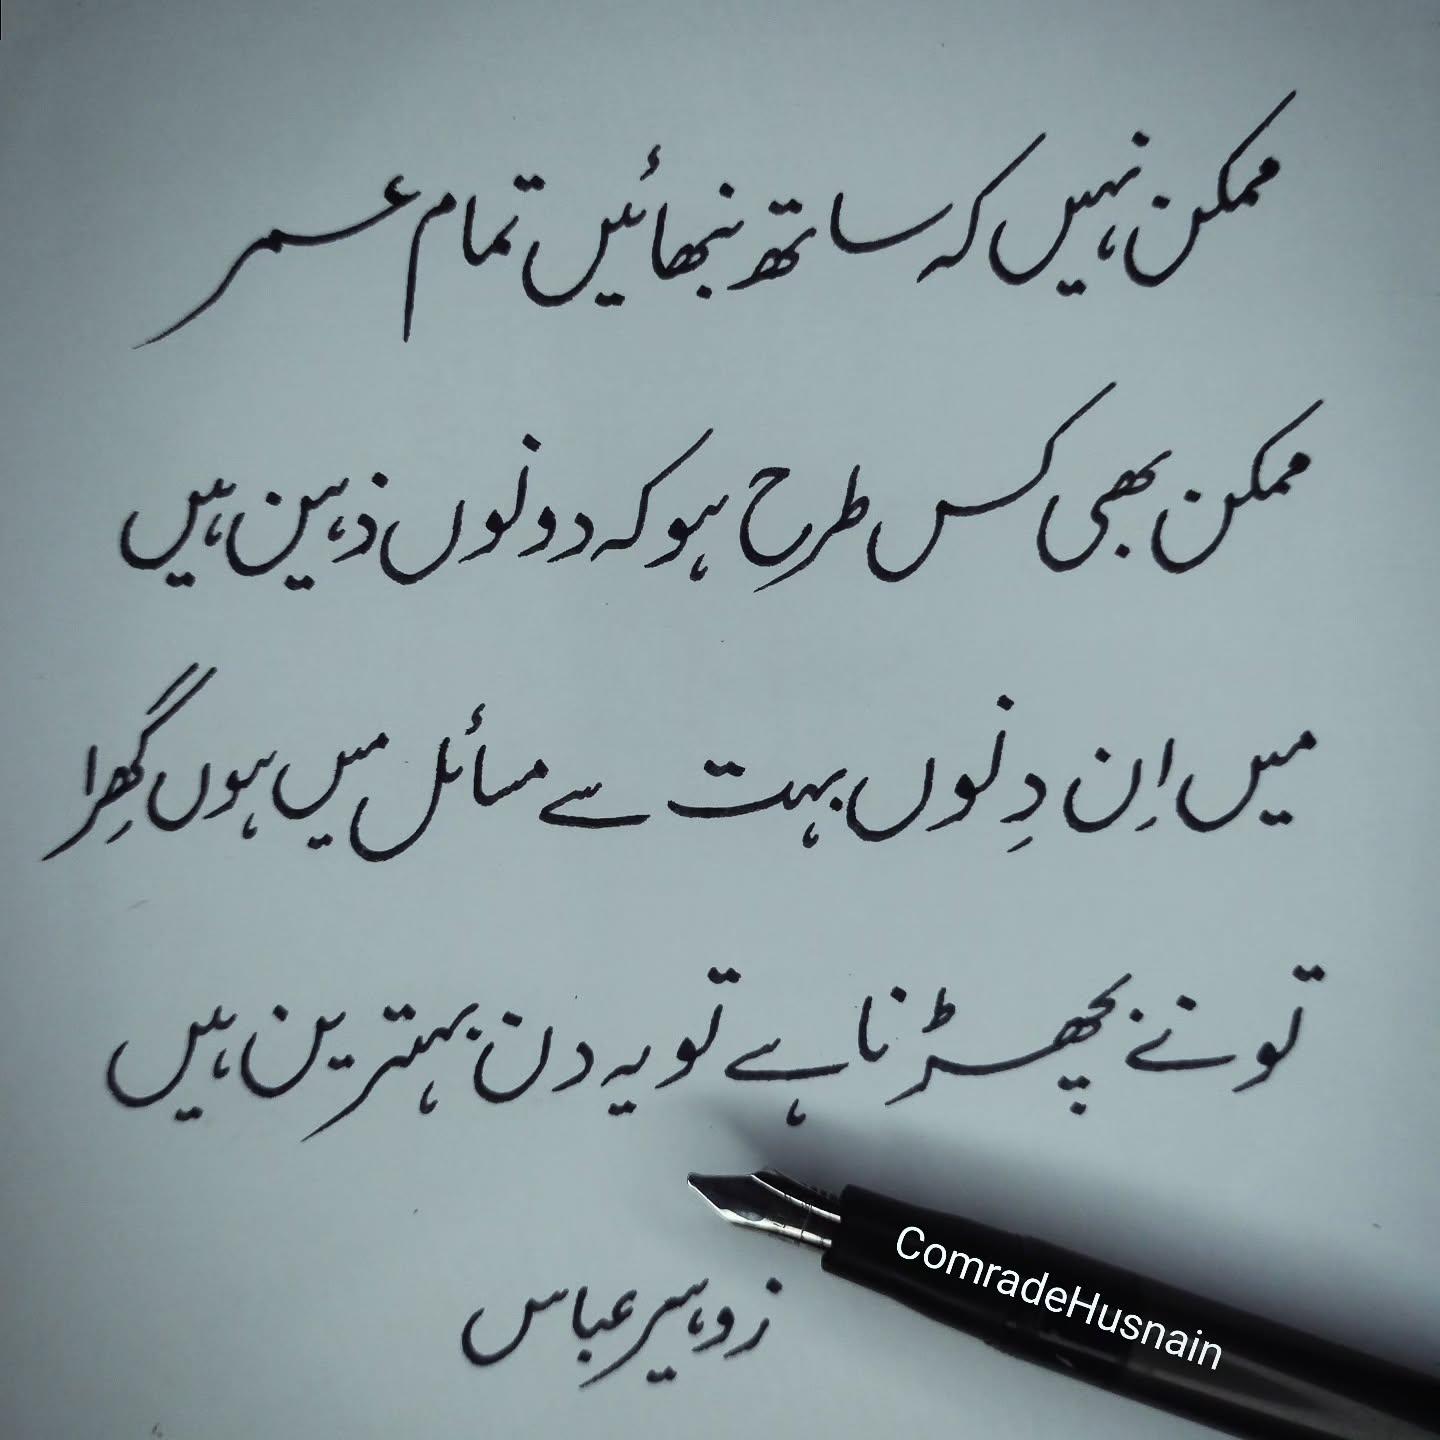 ممکن نہیں کہ ساتھ نبھائیں تمام عمر
ممکن بھی کس طرح ہو کہ دونوں ذہین ہیں
میں اِن دِنوں بہت سے مسائل میں ہوں گھِرا
تو نے بچھڑنا ہے تو یہ دن بہترین ہیں
زوہیر عباس
ComradeHusnain